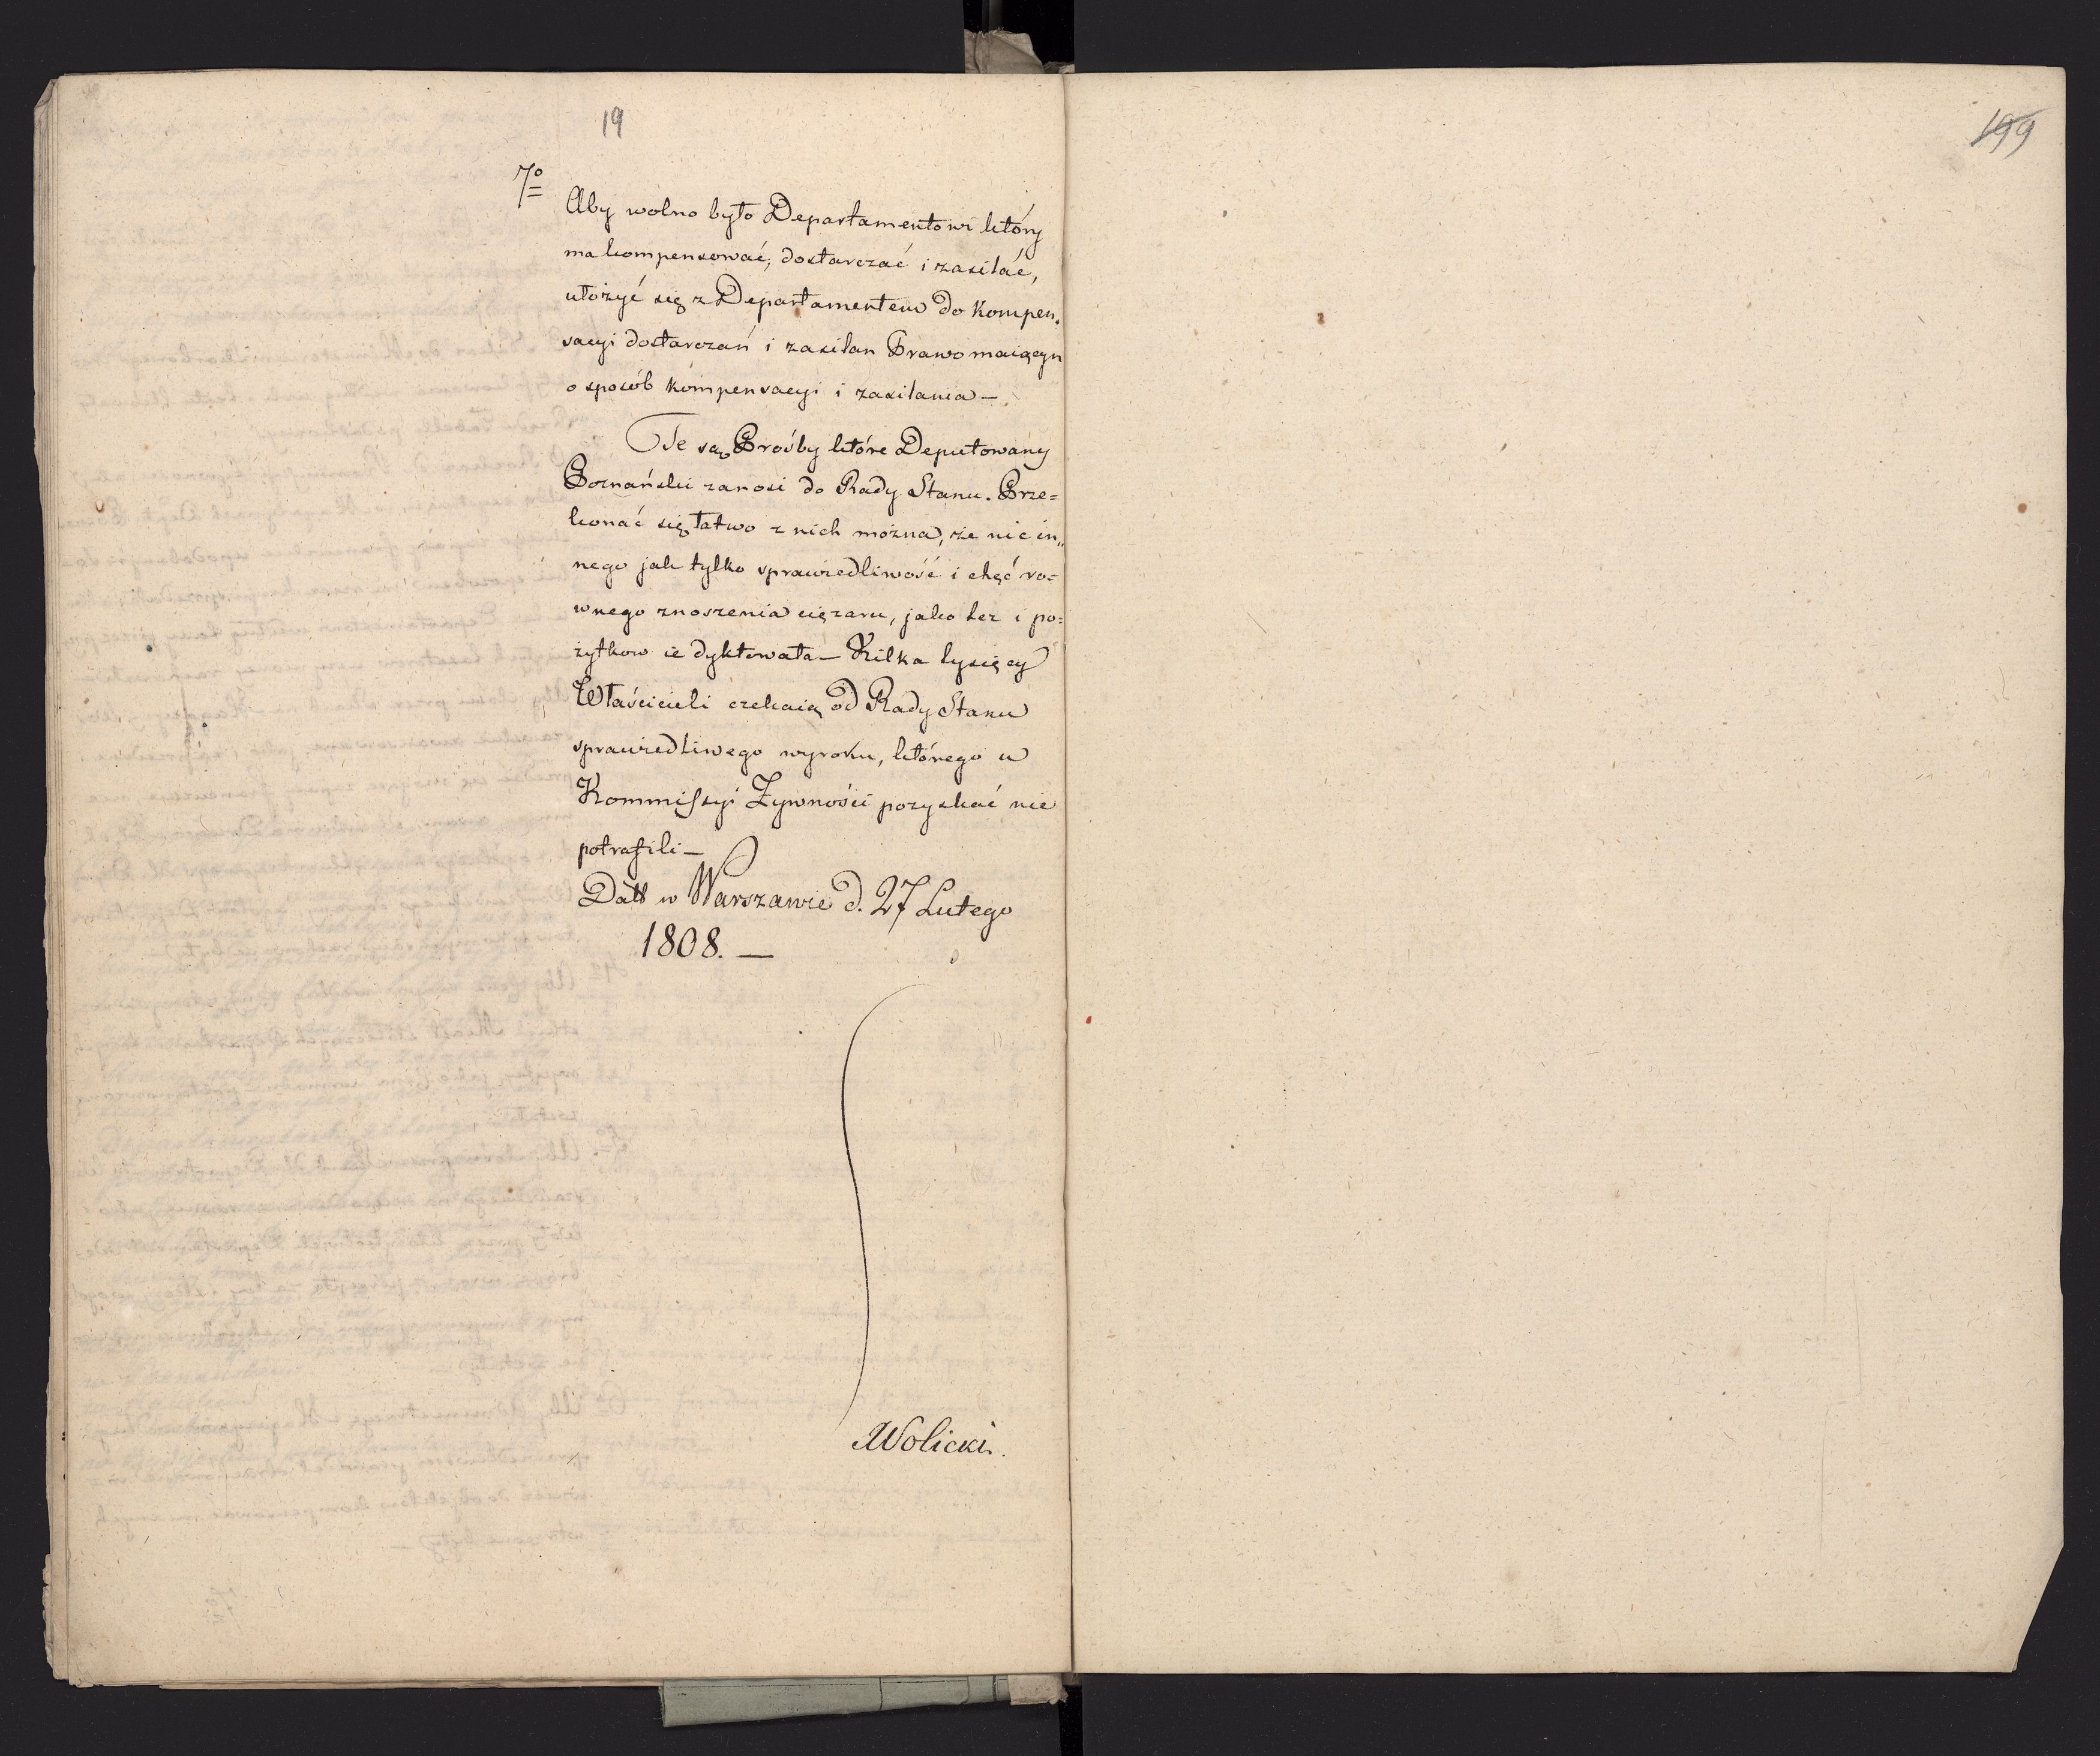 19
7º
Aby wolno było Departamentowi który
ma kompensować, dostarczać i zasilać,
ułożyć się z Departamentem do kompen„
sacyi dostarczań i zasilan Prawo maiącym
o sposób kompensacyi i zasilania —
Te są Prośby które Deputowany
Poznański zanosi do Rady Stanu. Prze=
konać się łatwo z nich można, że nic in„
nego jak tylko sprawiedliwość i chęć ro=
wnego znoszenia ciężaru, jako też i po=
żytkow ie dyktowała — Kilka tysięcy
Właścicieli czekaią od Rady Stanu
sprawiedliwego wyroku, którego u
Kommissyi Żywności pozyskać nie
potrafili —
Datt w Warszawie d. 27 Lutego
1808. —
Wolicki.
199